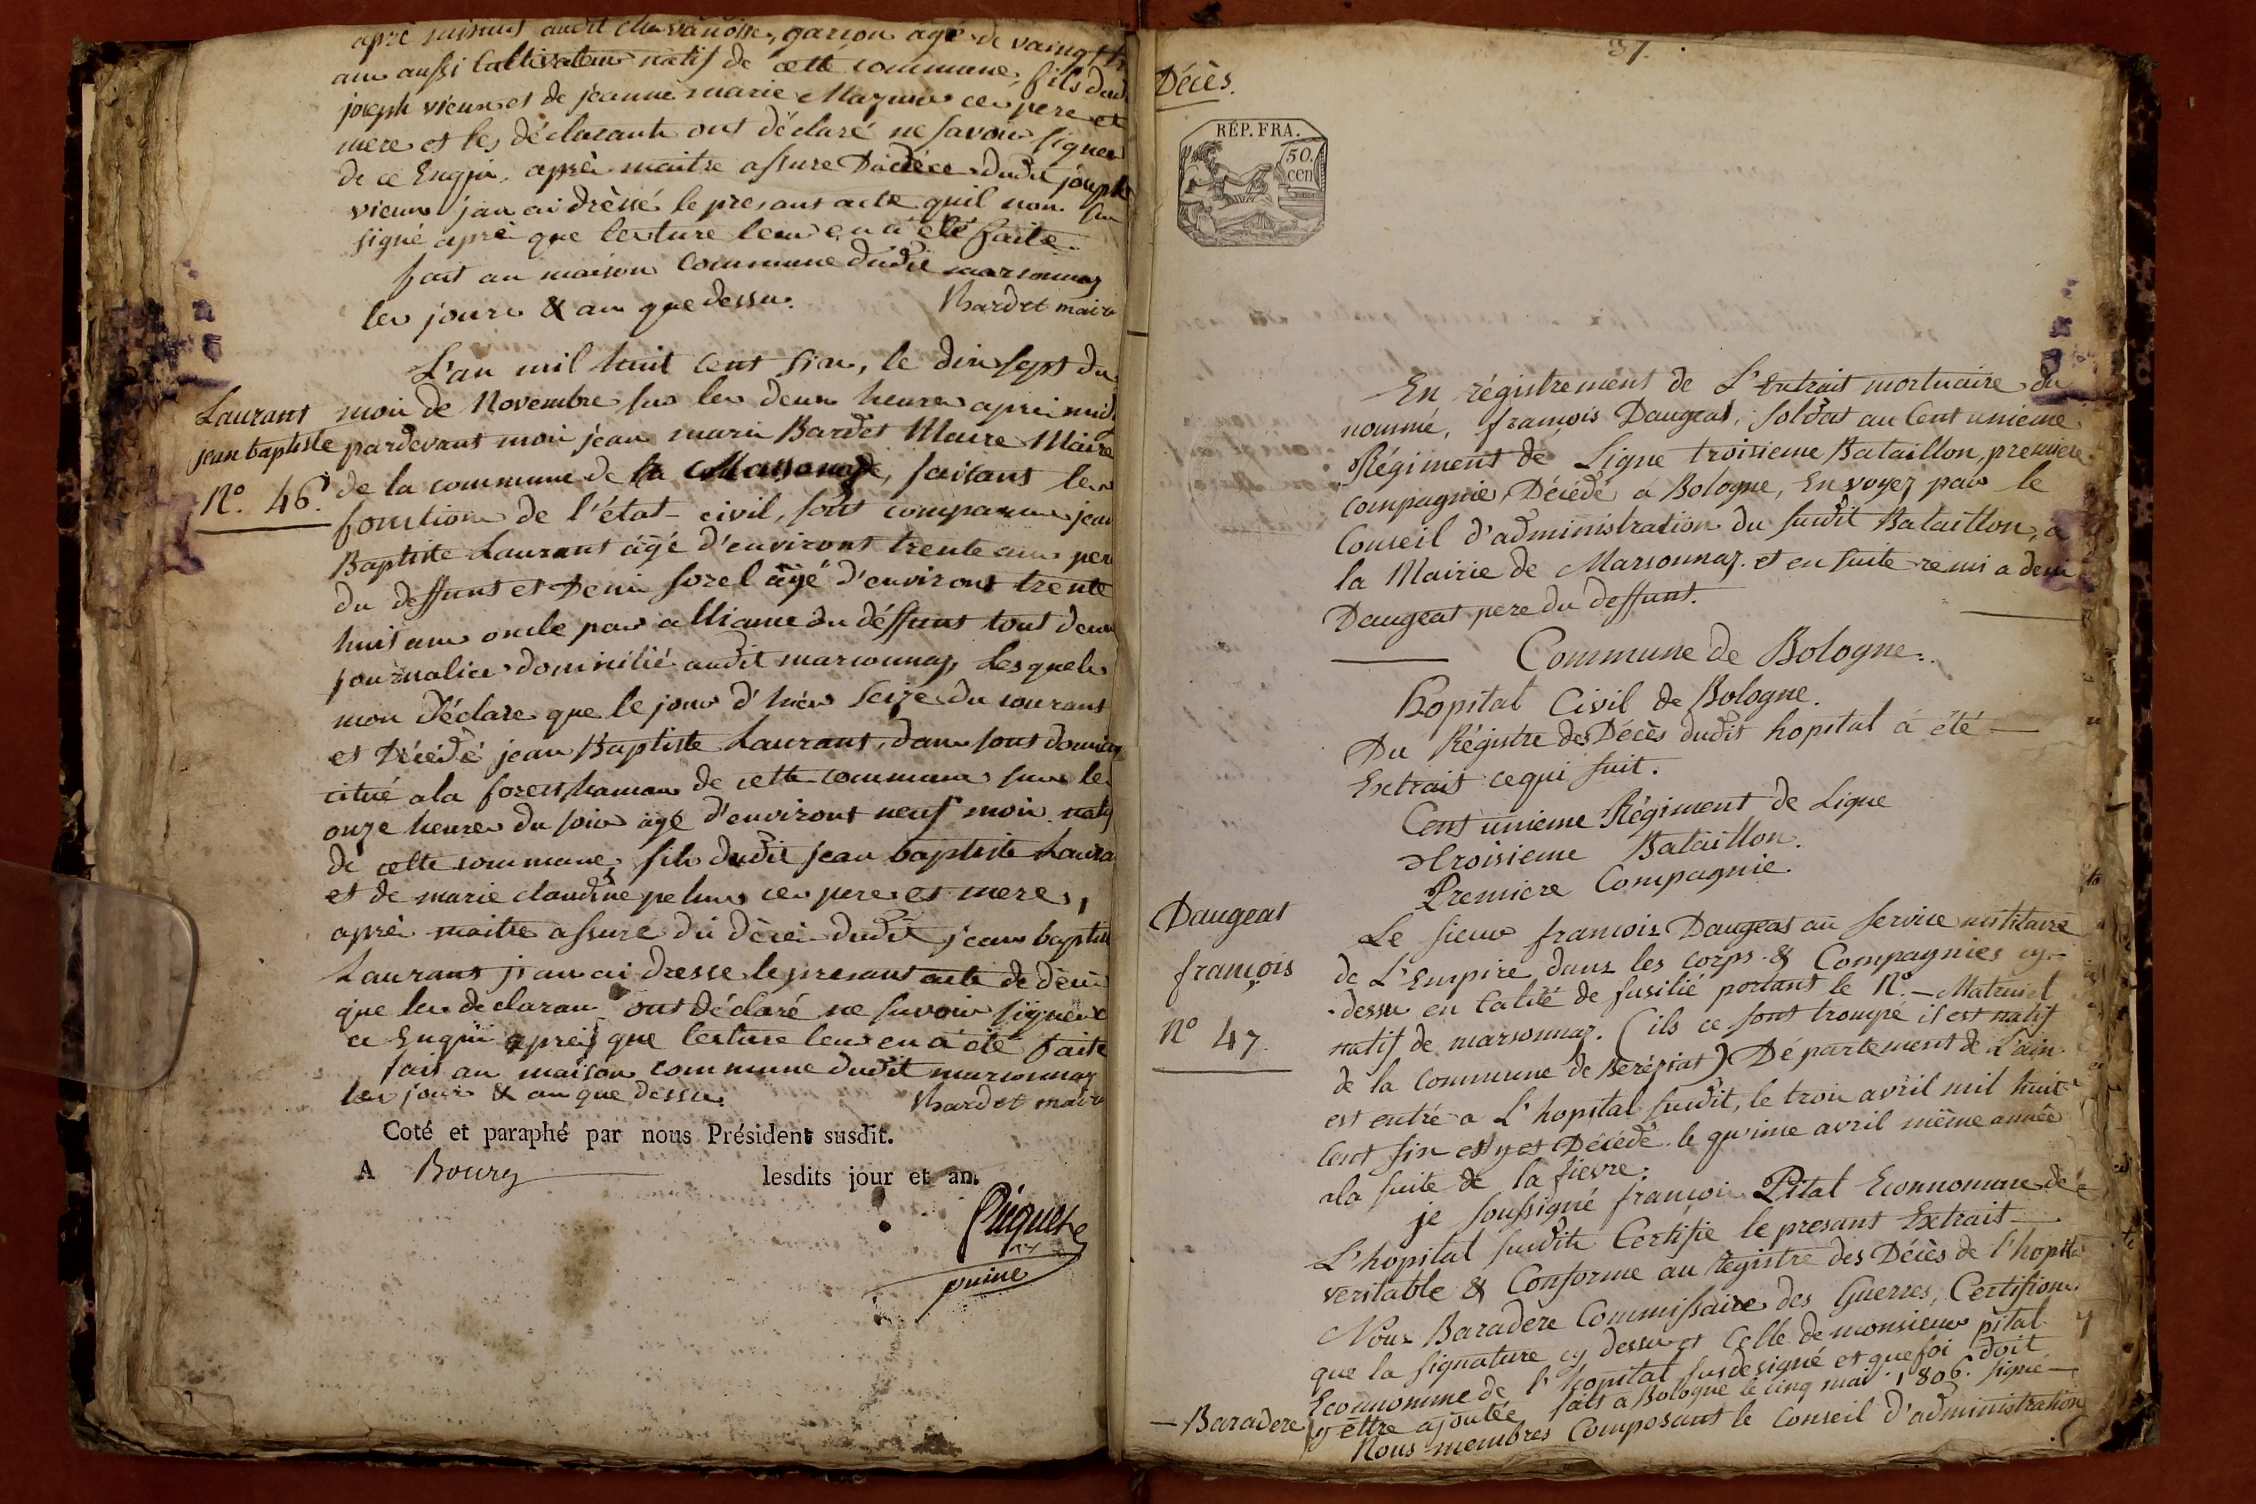 garçon agé de vaingt
ans aussi Cultivateur natif de cette commune, fils dud
joseph vieux et de jeanne marie Mazuir ces pere et
mere et les déclarants ont déclaré ne savoir signer
de ce Enqui, apprè maitre assure du décè dudit joseph
vieux jan ai drèssé le presant acte quil non
signé aprè que lecture leur en a été faite.
fait an maison commune dudit marsonnaz
les jours & an que dessu.
Bardet maire
L'an mil huit cent six, le dix sept du
Laurant
jean baptiste
N°. 46.
mois de Novembre sur les deux heures aprè midi
pardevant moi jean marie Bardet Maire Maire
de la commune de Marsonnaz, faisant les
fonctions de l'état civil, sont comparus jean
Baptiste Laurant âgé d'environt trente ans pere
du deffunt et Denis sorel âgé d'environt trente
huit ans oncle par alliance du déffunt tout deux
journalier domicilié audit marsonnaz, Lesquels
mon déclare que le jour d'hier seize du courant
et Décédé jean Baptiste Laurant, dans sont domicile
citué a la forest hameau de cette commune sur les
onze heures du soir âgé d'environt neuf mois natif
de cette commune, fils dudit jean baptiste Laura
et de marie claudine pelus ces pere et mere,
aprè maitre assure du décè dudit jean baptiste
Laurant j'an ai dresse le presant acte de décè
que les declarans ont déclaré ne savoir signer
ce Enqui aprè que lecture leur en a été faite
fait an maison commune dudit marsonnaz
les jours & an que dessu.
Bardet maire
Coté et paraphé par nous Président susdit.
A Bourg lesdits jour et an.
Piquet
puiné
37.
Décès.
RÉP. FRA.
50.
cen
En régistrement de L'Extrait mortuaire du
nommé, françois Daugeat, Soldat au Cent unieme
Régiment de Ligne troisieme Bataillon, premiere
compagnie, Décédé à Bologne, Envoyez par le
Conseil d'administration du susdit Bataillon, a
la Mairie de Marsonnaz. et en suite remi a deni
Daugeat pere du deffunt.
Commune de Bologne.
Hopital Civil de Bologne.
Du Régistre des Décès dudit hopital á été
Extrait ce qui suit.
Cent unieme Régiment de Ligne
Troisieme Bataillon.
Premiere Compagnie.
Daugeat
françois
N° 47.
Le sieur françois Daugeat au service militaire
de L'Empire, dans les corps & Compagnies cy-
dessu en Calité de fusilié portant le N°. — Matricul
natif de marsonnaz. (ils ce sont trompé il est natif
de la Commune de Béréziat) Département de L'ain
est entré a L'hopital susdit, le trois avril mil huit
Cent six et y et Décédé le quinze avril même année
a la suite de la fievre.
je soussigné françois Pital Econnomme de
L'hopital susdit Certifie le presant Extrait
veritable & Conforme au Régistre des Décès de l'hopital
Nous Baradere Commissaire des Guerres, Certifions
que la signature cy dessu et Celle de monsieur pital
Econnomme de l'hopital susdesigné et que foi doit
y être ajoutée fait a Bologne le cinq mai 1806. signé
— Baradere
Nous membres Composant le Conseil d'administration